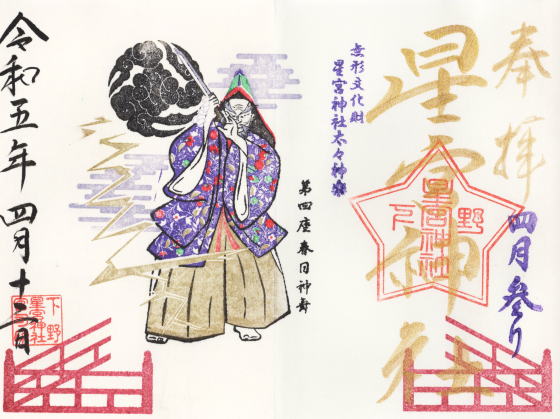 奉拝
四月参り
星宮神社
下野
星宮神社
無形文化財
星宮神社太々神楽
第四座 春日神舞
令和五年 四月十二日
下野
星宮神社